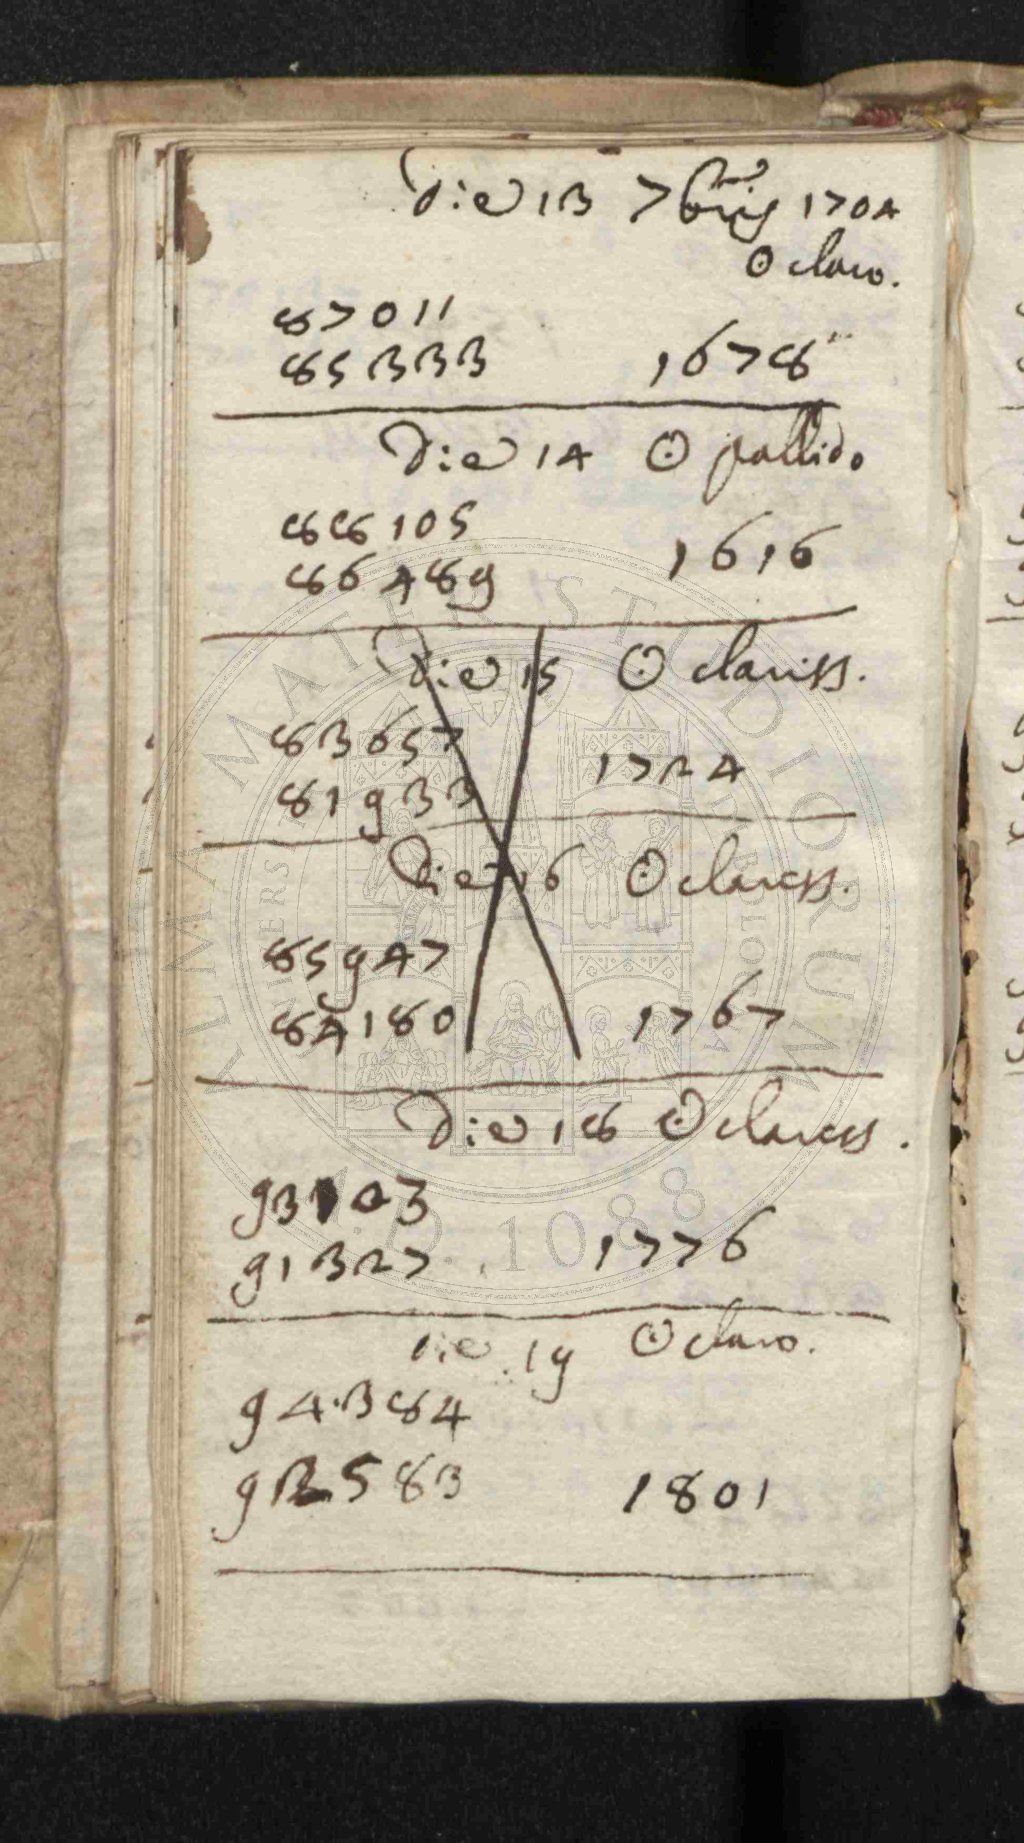 Die 13 7bris 1704
☉ claro.
87011
85333 1678
Die 14 ☉ pallido
88105
86489 1616
Die 15 ☉ clariss.
83657
81933 1724
Die 16 ☉ clariss.
85947
84180 1767
Die 18 ☉ clariss.
93103
91327 1776
Die 19 ☉ claro.
94384
92583 1801
ALMA MATER STUDIORUM
A.D. 1088